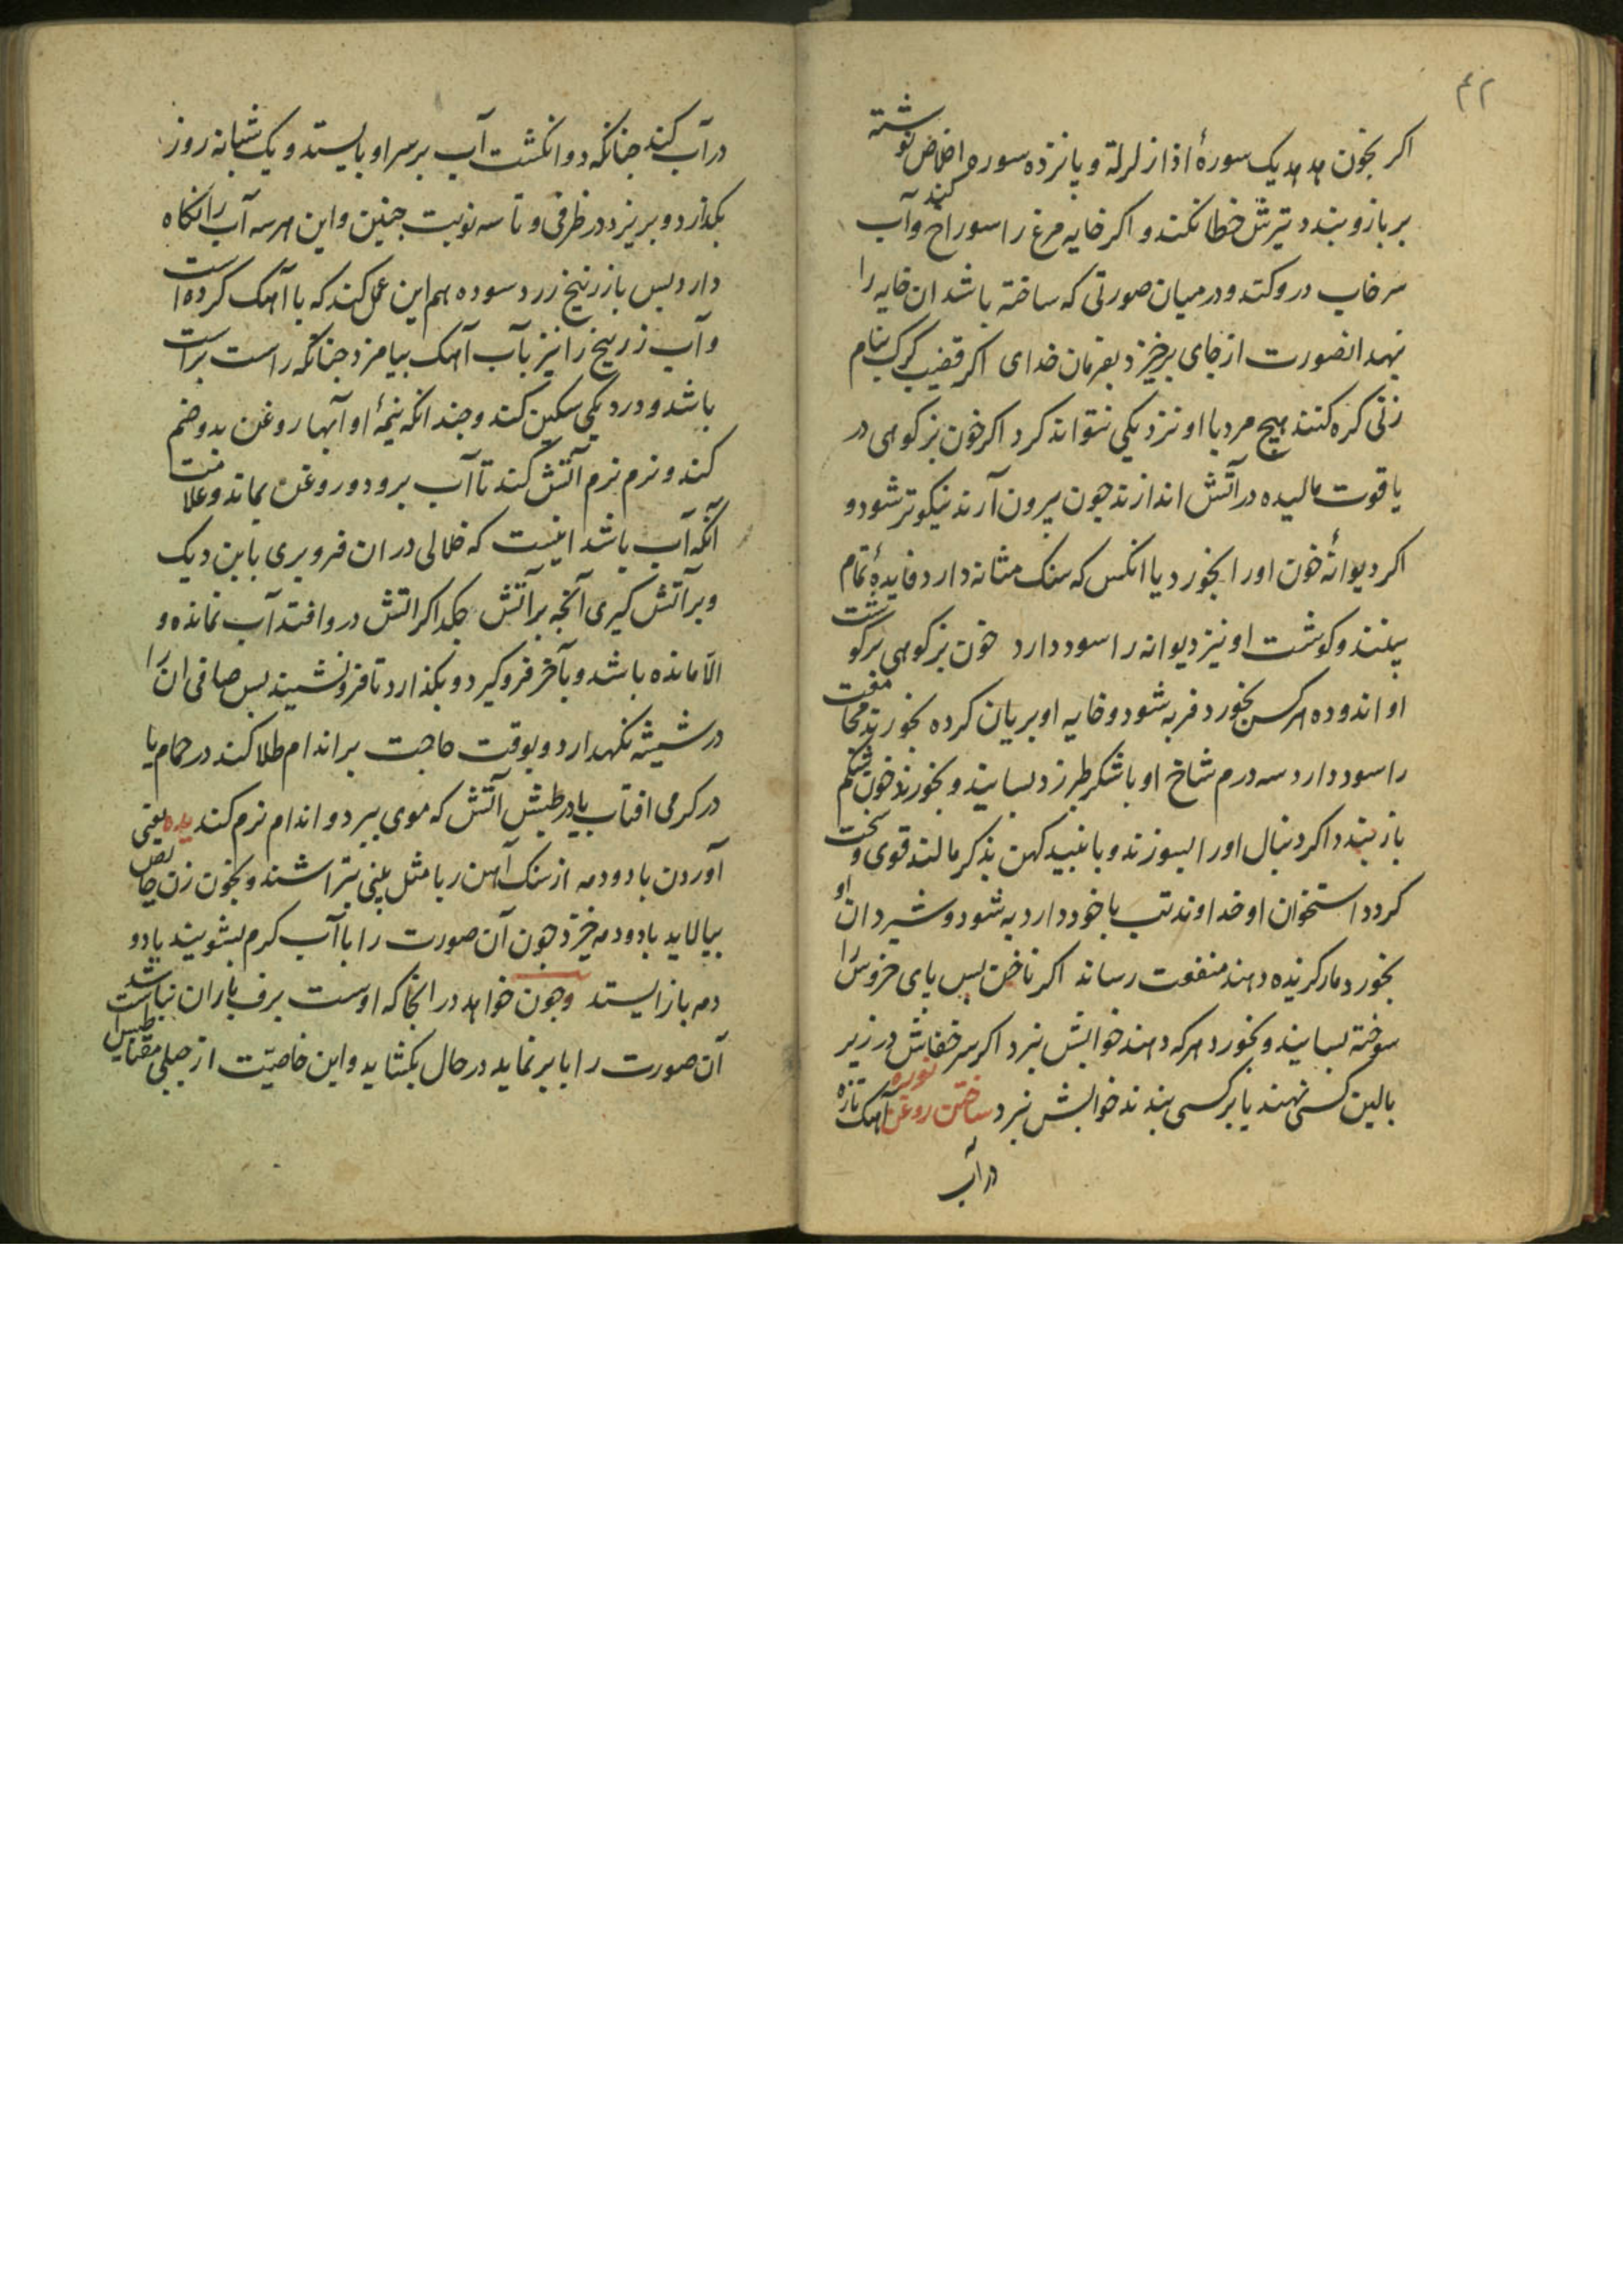 ۴۲
اکر بخون هدهد یک سورهٔ اذا زلزلة و پانزده سوره اخلاص نوشته
بر بازو بندد تیرش خطا نکند و اکر خایه مرغ را سوراخ کند و آب
سرخاب درو کند و در میان صورتی که ساخته باشد ان خایه را
نهد انصورت از جای برخیزد بفرمان خدای اکر قضیب کرک بنام
زنی کره کنند هیچ مرد با او نزدیکی نتواند کرد اکر خون بز کوهی در
یاقوت مالیده در آتش اندازند چون بیرون آرند نیکوتر شود و
اکر دیوانهٔ خون او را بخورد یا انکس که سنک مثانه دارد فایدهٔ تمام
بینند و کوشت او نیز دیوانه را سود دارد خون بز کوهی بر کوشت
او اندوده هر کس بخورد فربه شود و خایه او بریان کرده بخورند
را سود دارد سه درم شاخ او با شکر طبرزد بسایند و بخورند خون شکم
باز بندد اکر دنبال او را بسوزند و با نبید کهن بذکر مالند قوی و سخت
کردد استخوان او خداوند تب با خود دارد به شود و شیردان او
بخورد مار کزیده دهند منفعت رساند اکر ناخن پس پای خروس را
سوخته بسایند و بخورد هرکه دهند خوابش نبرد اکر سر خفاش در زیر
بالین کسی نهند یا بر کسی بندند خوابش نبرد ساختن روغن نوره آهک تازه
در آب
در آب کند چنانکه دو انکشت آب بر سر او بایستد و یک شبانه روز
بکذارد و بریزد در ظرفی و تا سه نوبت چنین و این هر سه آب را نکاه
دارد پس باز زرنیخ زرد سوده هم این عمل کند که با آهک کرده است
و آب زرنیخ را نیز بآب آهک بیامزد چنانکه راست براست
باشد و در دیکی سکین کند و چندانکه نیمهٔ او آبها روغن بدو ضم
کند و نرم نرم آتش کند تا آب برود و روغن بماند و علامت
آنکه آب باشد اینست که خلالی در ان فرو بری باین دیک
و بر آتش کیری آنچه بر آتش چکد اکر اتش درو افتد آب نمانده و
الا مانده باشد و بآخر فرو کیرد و بکذارد تا فرو نشیند پس صافی ان را
در شیشه نکهدارد و بوقت حاجت بر اندام طلا کند در حمام یا
در کرمی افتاب یا در طبش آتش که موی ببرد و اندام نرم کند یده یعنی
آوردن باد و دمه از سنک آهن ربا مثل بینی بتراشند و بخون زن حایض
بیالاید باد و دمه خیزد چون آن صورت را با آب کرم بشویند باد و
دمه باز ایستد و چون خواهد در انجا که اوست برف باران نباشد
آن صورت را بابر نماید در حال بکشاید و این خاصیت از جبلی مقناطیس است